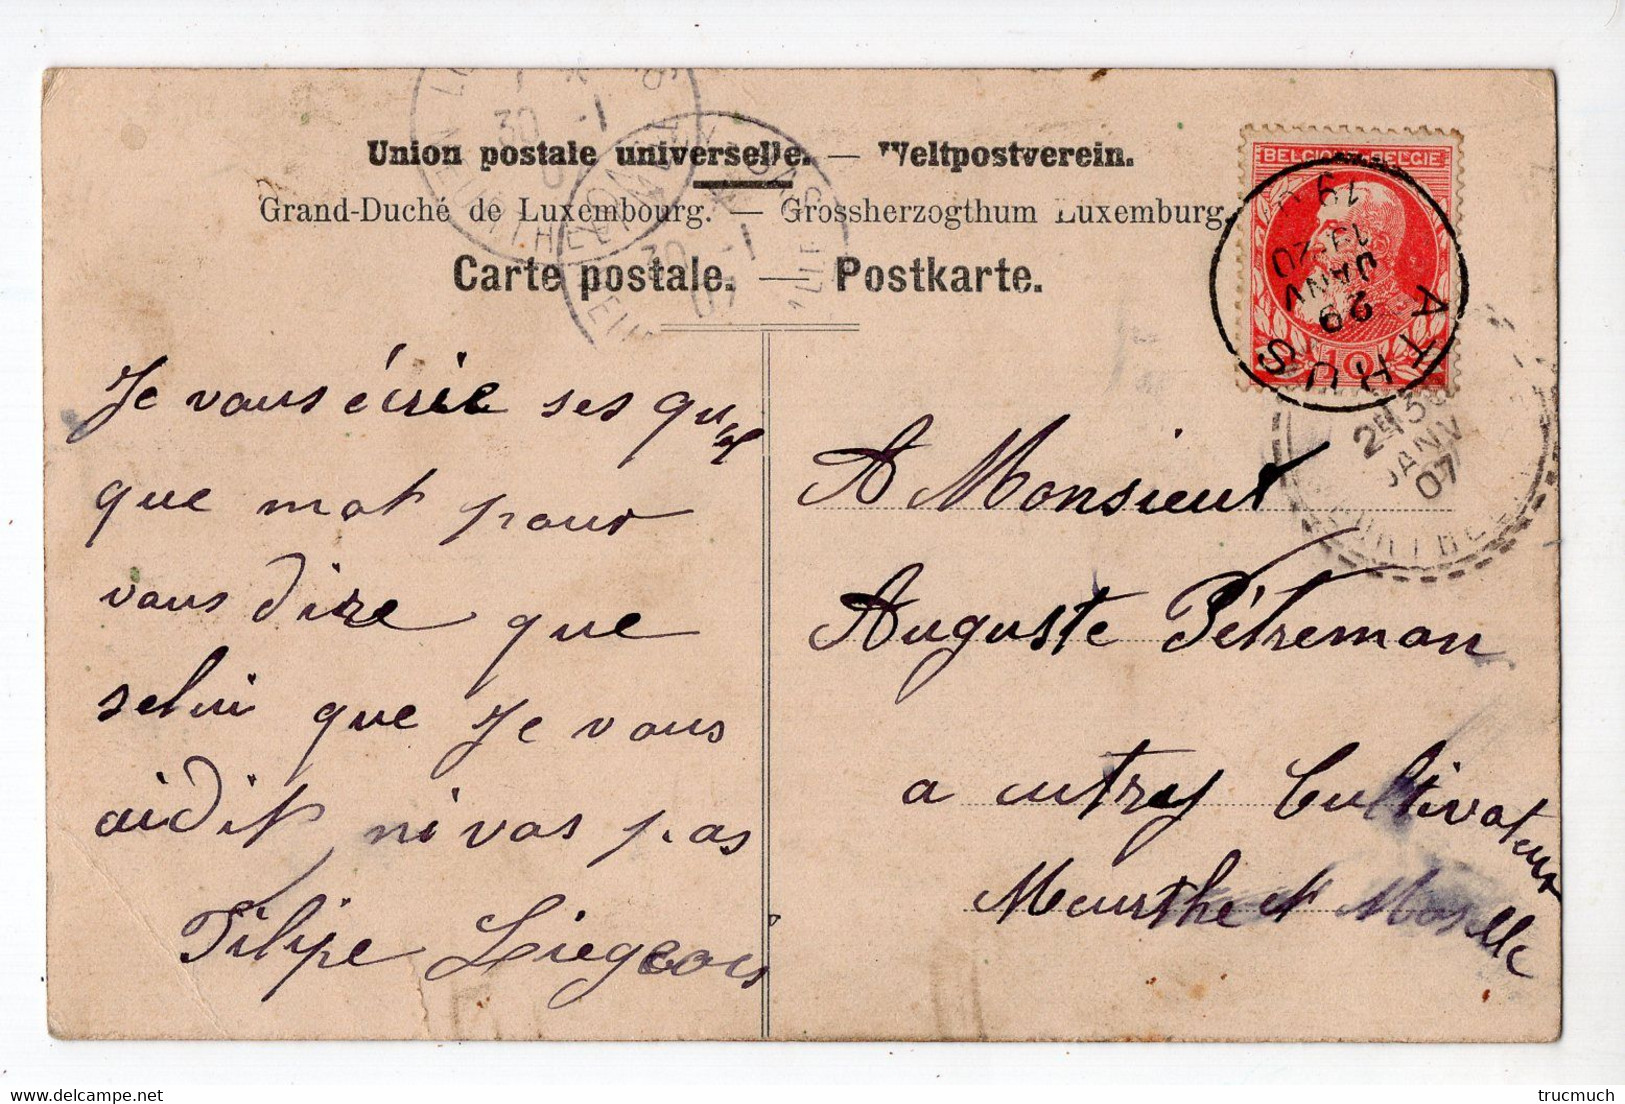 Union postale universelle. — Weltpostverein.
Grand-Duché de Luxembourg. — Grossherzogthum Luxemburg.
Carte postale. — Postkarte.
BELGIQUE BELGIE
10
ATHUS
29
JANV
19-20
19
30 -1
07
30 -1
07
2E 38
JANV
07
Je vous écrie ses qu
que mot pour
vous dire que
selui que Je vous
aidit ni vas pas
Filipe Liegeois
A Monsieur
Auguste Pétreman
a autrey Cultivateur
Meurthe et Moselle
trucmuch